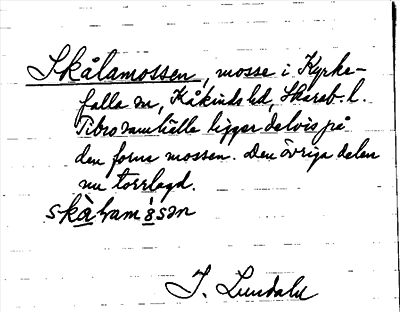 Skålamossen, mosse i Kyrke-
falla sn, Kåkinds hd, Skarab. l.
Tibro samhälle ligger delvis på
den forna mossen. Den övriga delen
nu torrlagd.
skàlam
J. Lundahl